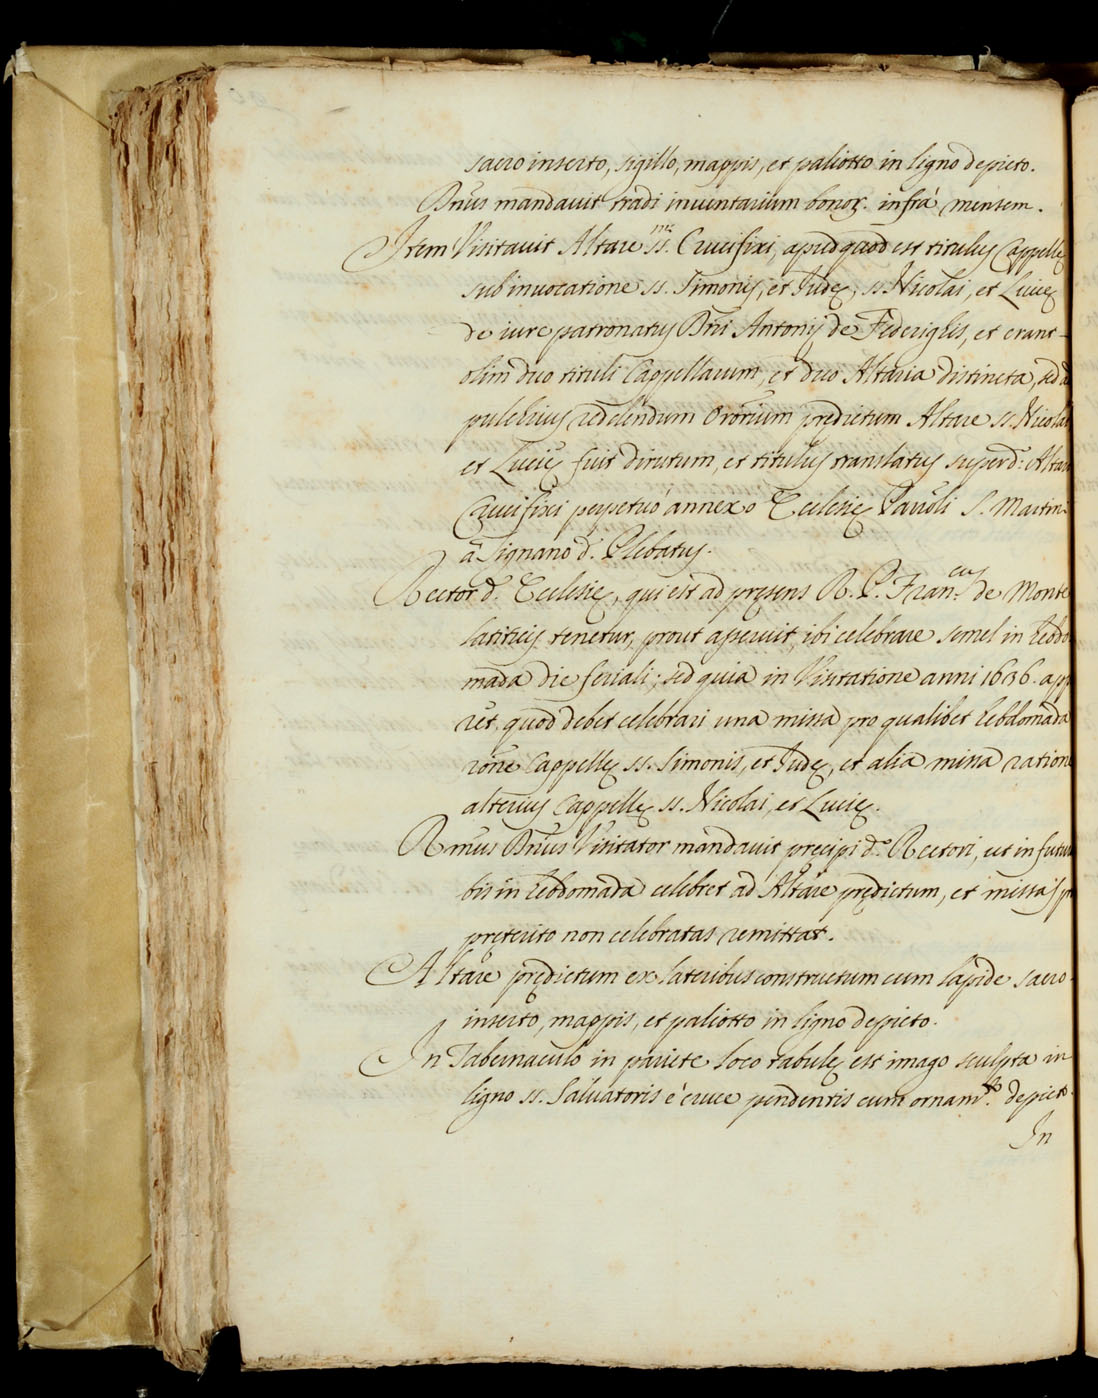 sacro inserto, sigillo, mappis, et paliotto in ligno depicto.
Dnus mandauit tradi inuentarium bonor. infrà mensem.
Item Visitauit Altare ss.mi Crucifixi, apud quod est titulus Cappellę
sub inuocatione ss. Simonis, et Iudę, ss. Nicolai, et Lucię
de iure patronatus Dni Antonij de Federighis, et erant
olim duo tituli Cappellarum, et duo Altaria distincta, sed ad
pulchrius reddendum Orōrium prędictum Altare ss. Nicolai
et Lucię fuit dirutum, et titulus translatus super d: Altar
Crucifixi perpetuò annexo Ecclesię Parōli S. Martini
à Signano d: Plebatus.
Rector d: Ecclesię, qui est ad pręsens R. P. Fran.cus de Monte
latiticis tenetur, prout asseruit, ibi celebrare semel in hebdo
mada die feriali; sed quia in Visitatione anni 1636. appa
ret quod debet celebrari una missa pro qualibet hebdomada
rōne Cappellę ss. Simonis, et Iudę, et alia missa ratione
alterius Cappellę ss. Nicolai, et Lucię.
Rmus Dnus Visitator mandauit pręcipi d: Rectori, ut in futur
bis in hebdomada celebret ad Altare prędictum, et missas pr
pręterito non celebratas remittat.
Altare prędictum ex lateribus constructum cum lapide sacro
inserto, mappis, et paliotto in ligno depicto.
In Tabernaculo in pariete loco tabulę est imago sculpta in
ligno ss. Saluatoris è cruce pendentis cum ornam.to depicto.
In